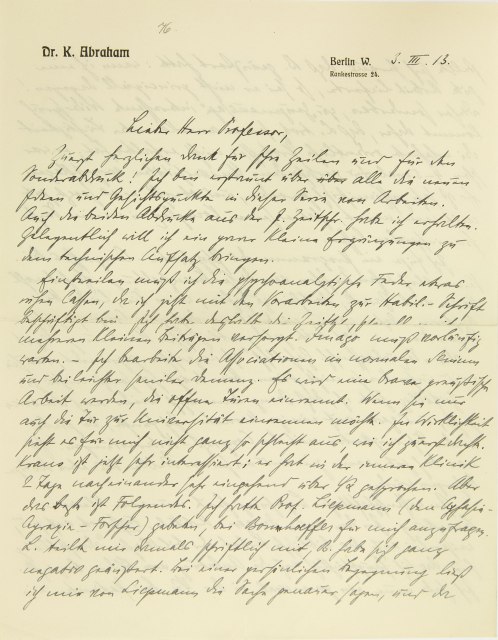 76
Dr. K. Abraham
Berlin W. 3. III. 13.
Rankestrasse 24.
Lieber Herr Professor,
Zuerst herzlichen Dank für Ihre Zeilen und für den
Sonderabdruck! Ich bin erstaunt über alle die neuen
Ideen und Gesichtspunkte in dieser Serie von Arbeiten.
Auch die beiden Abdrucke aus der Zeitschr. habe ich erhalten.
Gelegentlich will ich ein paar kleine Ergänzungen zu
dem technischen Aufsatz bringen.
Einstweilen muß ich die psychoanalytische Feder etwas
ruhen lassen, da ich jetzt mit den Vorarbeiten zur Habil.-Schrift
beschäftigt bin. Ich habe deshalb die Zeitschr.
mehreren kleinen Beiträgen versorgt. Imago muß vorläufig
warten. – Ich bearbeite die Associationen im normalen Senium
und bei leichter seniler Demenz. Es wird eine brave preußische
Arbeit werden, die offene Türen einrennt. Wenn sie nur
auch die Tür zur Universität einrennen möchte. In Wirklichkeit
sieht es für mich nicht ganz so schlecht aus, wie ich zuerst dachte.
Kraus ist jetzt sehr interessiert; er hat in der inneren Klinik
2 Tage nacheinander sehr eingehend über gesprochen. Aber
das Beste ist Folgendes. Ich hatte Prof. Liepmann (den Aphasie-
Apraxie-Forscher) gebeten, bei Bonhoeffer für mich anzufragen.
L. teilte mir damals schriftlich mit, B. habe sich ganz
negativ geäußert. Bei einer persönlichen Begegnung ließ
ich mir von Liepmann die Sache genauer sagen, und da